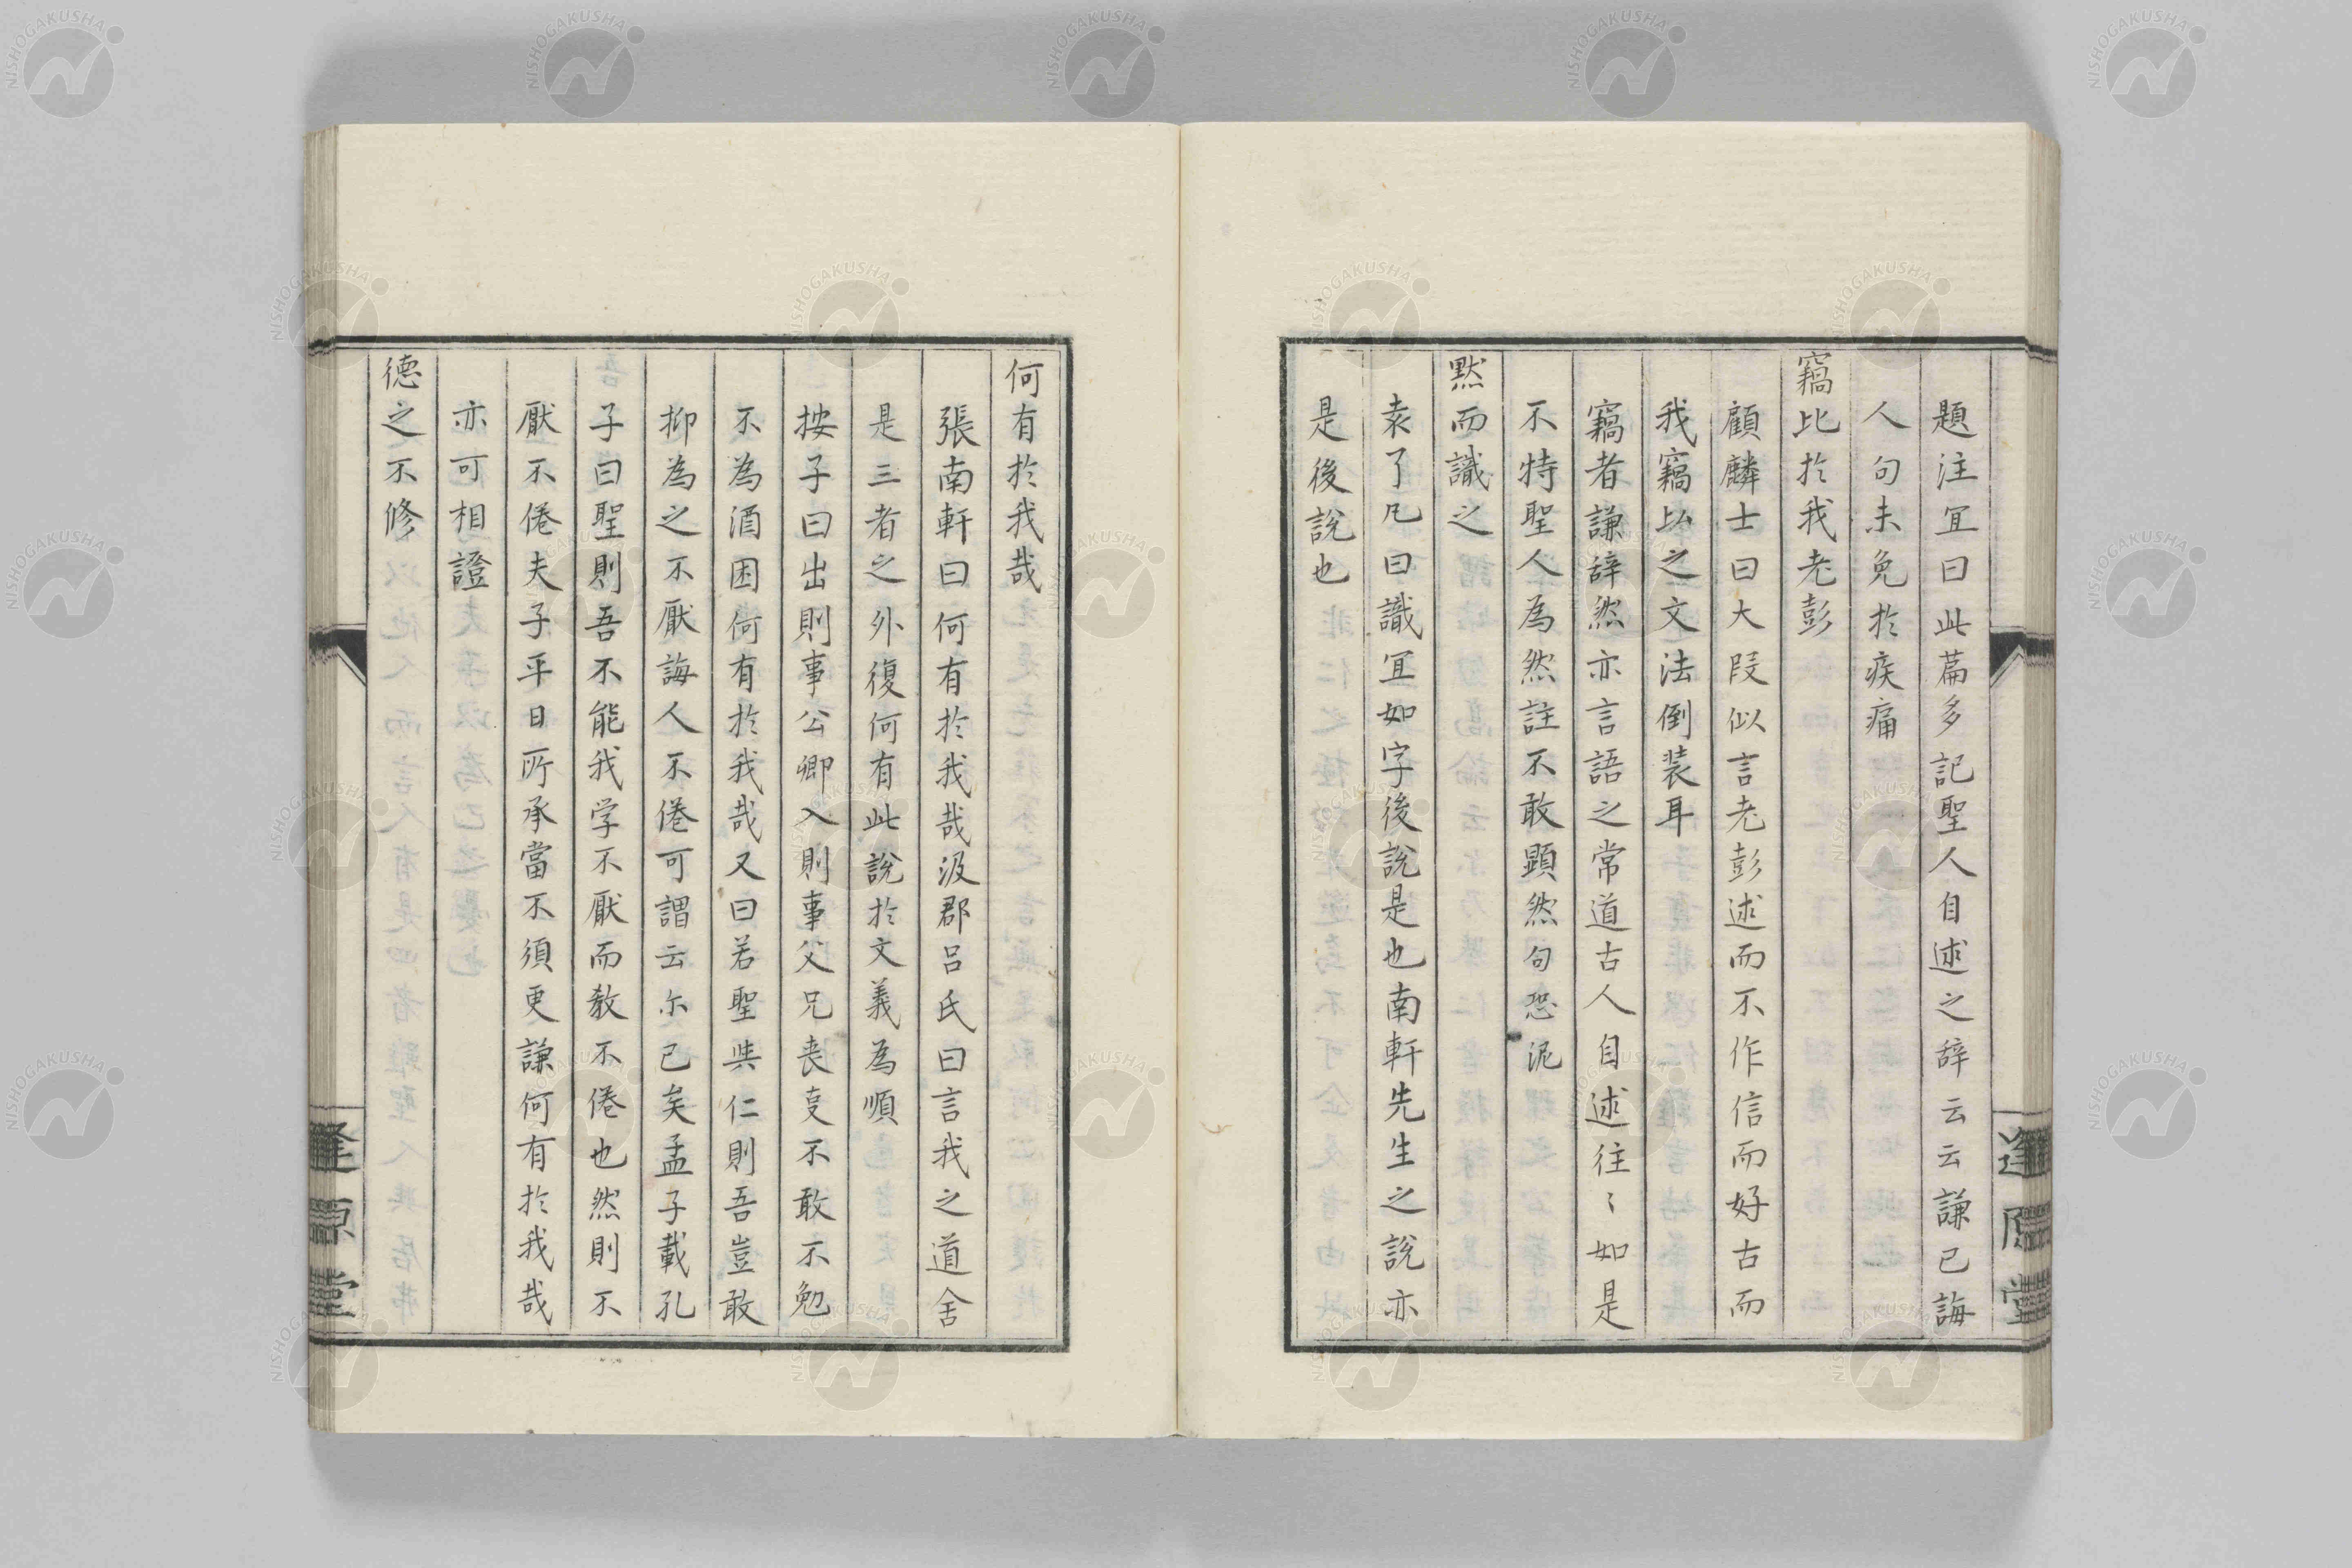 題注宜曰此萹多記聖人自述之辞云云謙已誨
人句未免於疾痛
竊比於我老彭
顧麟士曰大段似言老彭述而不作信而好古而
我竊比之文法倒装耳
竊者謙辞然亦言語之常道古人自述往〻如是
不特聖人為然註不敢顕然句恐泥
黙而識之
袁了凡曰識宜如字後説是也南軒先生之説亦
是後説也
逢原堂
何有於我哉
張南軒曰何有於我哉汲郡呂氏曰言我之道舍
是三者之外復何有此說於文義為順
按子曰出則事公卿入則事父兄喪事不敢不勉
不為酒困何有於我哉又曰若聖與仁則吾豈敢
抑為之不厭誨人不倦可謂云尓已矣孟子載孔
子曰聖則吾不能我学不厭而教不倦也然則不
厭不倦夫子平日所承當不須更謙何有於我哉
亦可相證
德之不修
逢原堂
NISHOGAKUSHA